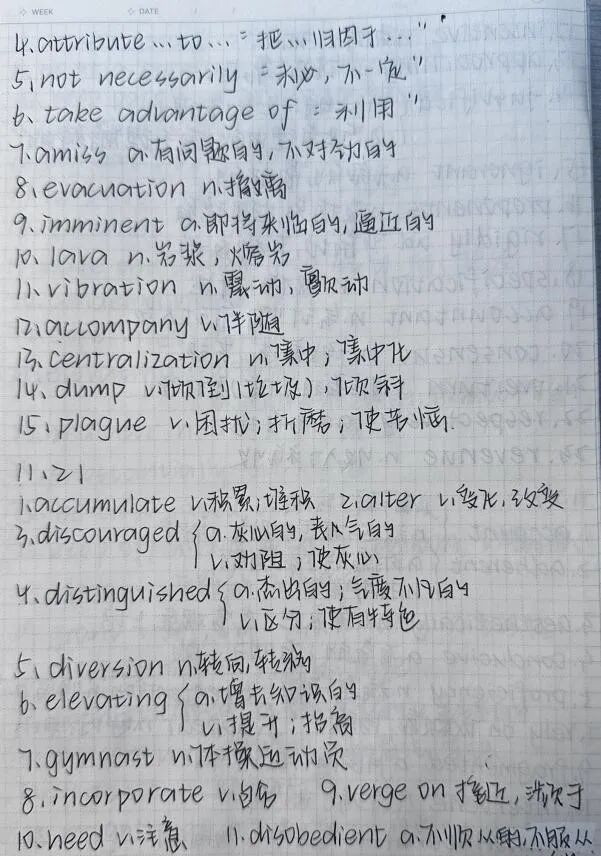 WEEK DATE
4.attribute...to...="把...归因于..."
5.not necessarily ="未必,不一定"
6.take advantage of ="利用"
7.amiss a.有问题的,不对劲的
8.evacuation n.撤离
9.imminent a.即将来临的,逼近的
10.lava n.岩浆,熔岩
11.vibration n.震动,颤动
12.accompany v.伴随
13.centralization n.集中;集中化
14.dump v.倾倒(垃圾),倾斜
15.plague v.困扰;折磨;使苦恼.
11.21
1.accumulate v.积累,堆积 2.alter v.变化,改变
3.discouraged a.灰心的,丧气的
v.劝阻;使灰心
4.distinguished a.杰出的;气度不凡的
v.区分;使有特色
5.diversion n.转向,转移
6.elevating a.增长知识的
v.提升;抬高
7.gymnast n.体操运动员
8.incorporate v.包含 9.verge on 接近,濒于
10.heed v.注意 11.disobedient a.不顺从的,不服从